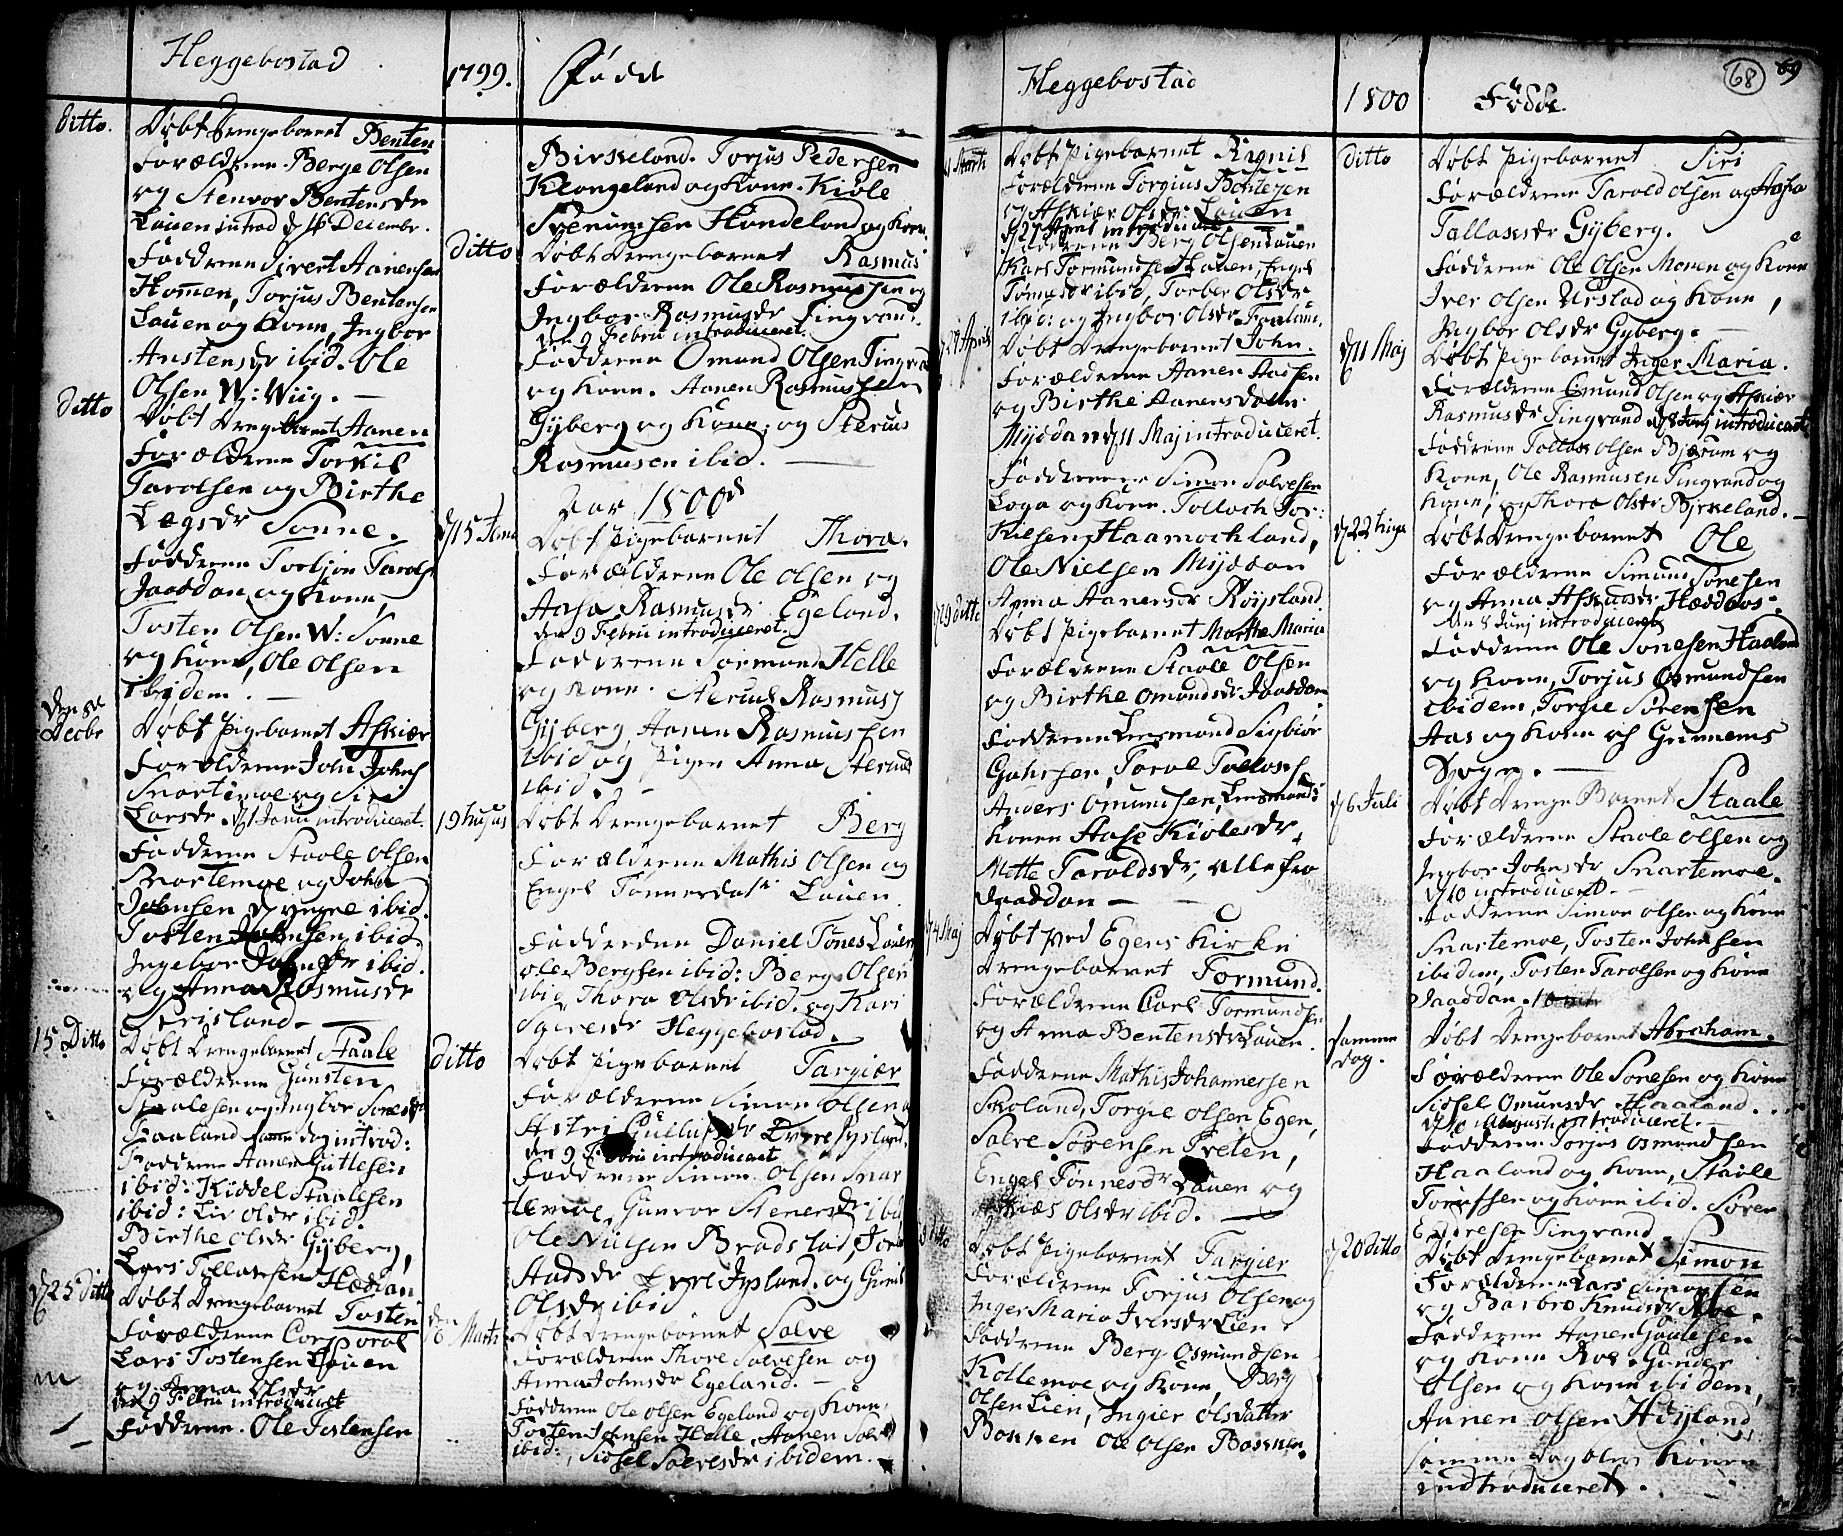 Heggebostad
1799.
Fødde
ditto.
Døbt Drengebarnet Benten
Forældrene Berge Olsen
og Stenvor Bentensdr
Lauen introd d: Decembr.
Fadderne Sivert Aanensen
Hommen, Torjus Bentensen
Lauen og Kone, Ingbor
Austensdr ibid. Ole
Olsen W: Wiig. —
ditto
Døbt Drengebarnet Aanen
Forældrene Torkil
Tarolsen og Birthe
Lagsdr Sonne.
Fadderne Torbjøn Tarols
Jaaddan og Kone,
Tosten Olsen W: Sonne
og Kone, Ole Olsen
ibidem. —
Decbr
Døbt Pigebarnet Askiær
Forældrene John Johns
Snartemoe og Siri
Larsdr. d 1 Janu introduceret.
Fadderne Staale Olsen
Snartemoe og John
Johnsen d yngre ibid.
Tosten Johnsen ibid.
Ingebor Johnsdr ibid.
og Anna Rasmusdr
Frisland —
15 Ditto
Døbt Drengebarnet Staale
Forældrene Gunsten
Staalesen og Ingbor Sonesdr
Haaland samme dag introd:
Fadderne Aanen Gutlesen
ibid: Kiddel Staalesen
ibid: Liv Olsdr ibid.
Birthe Olsdr Gyberg,
Lars Tollaksen Hædian
d 25 ditto
Døbt Drengebarnet Tosten
Forældrene Corporal
Lars Tostensen Lauen
og Anna Olsdr
den 9 Febru introduceret
Fadderne. Ole Tostensen
Birkeland. Torjus Pedersen
Klongeland og Kone. Kiøle
Syvertsen Hundeland og Kone.
ditto
Døbt Drengebarnet Rasmus
Forældrene Ole Rasmussen og
Ingbor Rasmusdr Tingvand.
den 9 Febru introduceret.
Fadderne Omund Olsen Tingvad
og Kone. Aanen Rasmussen
Gyberg og Kone, og Sterius
Rasmusen ibid. —
Aar 1800
d 15 Janu
Døbt Pigebarnet Thora.
Forældrene Ole Olsen og
Aasa Rasmusdr Egeland.
den 9 Febru introduceret.
Fadderne Tormund Helle
og Kone. Sterius Rasmus
Gyberg Aanen Rasmussen
ibid og Pigen Anna Sterius
ibid. —
19 hujus
Døbt Drengebarnet Berg
Forældrene Mathis Olsen og
Engel Tønnesdatr Lauen.
Fadderene Daniel Tønes Lauen,
Ole Bergsen ibid: Berg Olsen
ibid Thora Olsdr ibid. og Kari
Heggebostad.
ditto
Døbt Pigebarnet Targier
Forældrene Simon Olsen og
Astri Gullufsdr Evre Jysland,
den 9 Febru introduceret
Fadderne Simon Olsen Snar
temoe, Gunvor Stenersdr ibid
Ole Nielsen Bradstad,
Aadsdr Evre Jysland. og Gunild
Olsdr ibid
den Marts
Døbt Drengebarnet Salve
Forældrene Thore Salvesen og
Anna Johnsdr Egeland. —
Fadderne Ole Olsen Egeland og Kone,
Tosten Jonsen Helle, Aanen Salves
ibid:, Sidsel Salvesdr ibidem. —
Heggebostad
1800
Fødde.
68
69
Marti
Døbt Pigebarnet Ragnil
Forældrene Torgius Bentesen
og Askiær Olsdr: Lauen
d 27 April introduceret
Fadderene Berg Olsen Lauen
Karl Tormunds Lauen, Engel
Tønnesdr ibid, Torber Olsdr
ibid: og Ingbor Olsdr
d 27 April
Døbt Drengebarnet John.
Forældrene Aanen Aadsen
og Birthe Aanensdatr
Myddan d 11 Maj introduceret.
Fadderene Simon Salvesen
Loga og Kone. Tolloch Tor:
Kielsen, Haamochland,
Ole Nielsen Myddan
Anna Aanensdr Røysland.
ditto
Døbt Pigebarnet Marthe Maria
Forældrene Staale Olsen
og Birthe Omundsdr Jaaddan
Fadderne Lensmand Sigbiør
Gahrsen, Tarol Tollaks
Anders Omundsen, Lensmands
Konen Aase Kiølesdr,
Mette Taroldsdr, alle fra
Jaaddan —
d 4 Maj
Døbt ved Egens Kirke
Drengebarnet Tormund.
Forældrene Carl Tormundsen
og Anna Bentensdr Lauen.
Fadderne Mathis Johannesen
Skoland, Torgie Olsen Egen,
Salve Sørensen Treten,
Engel Tønnesdr Lauen og
Olsdr ibid. —
ditto
Døbt Pigebarnet Targier
Forældrene Torjus Olsen og
Inger Maria Iversdr Lien.
Fadderne Berg Osmundsen
Kollemoe og Kone, Berg
Olsen Lien, Ingier Olsdatter
Bokken Ole Olsen Bokken.
ditto
Døbt Pigebarnet Siri
Forældrene Tarold Olsen og Aasa
Tallaksdr Gyberg.
Fadderne Ole Olsen Monen og Kone
Iver Olsen Urstad og Kone,
Ingbor Olsdr Gyberg. —
d 11 Maj
Døbt Pigebarnet Inger Maria.
Forældrene Osmund Olsen og Askiær
Rasmusdr Tingvand d 8 Junj introduceret
Fadderne Tollak Olsen Bjærum og
Kone, Ole Rasmusen Tingvand og
Kone, og Thora Olsdr Birkeland. —
d 22 hujus
Døbt Drengebarnet Ole
Forældrene Simund Sønesen
og Anna Haaland.
den 8 Junj introduceret
Fadderne Ole Sonesen Haaland
og Kone, Torjus Osmundsen
ibidem, Torgie Sørensen
Aas og Kone af Grinnems
Sogn. —
d 6 Juli
Døbt Drenge Barnet Staale
Forældrene Staale Olsen og
Ingbor Johnsdr Snartemoe.
d 10 introduceret. —
Fadderne Simon Olsen og Kone
Snartemoe, Tosten Johnsen
ibidem, Tosten Tarolsen og Kone
Jaaddan.
samme
dag.
Døbt Drengebarnet Abraham.
Forældrene Ole Sonesen og Kone
Sidsel Omunsdr Haaland.
d 10 Augusti introduceret. —
Fadderne Torjus Osmundsen
Haaland og Kone, Staale
Torafsen og Kone ibid. Søren
Endresen Tingvand.
d 20 ditto
Døbt Drengebarnet Simon
Forældrene Lars Simonsen
og Barbro Knudsdr
Fadderne Aanen Gaulesen
og Kone Roe. Gunder
Olsen og Kone ibidem,
Aanen Olsen Høyland,
samme Dag blev Konen
indtroduceret.